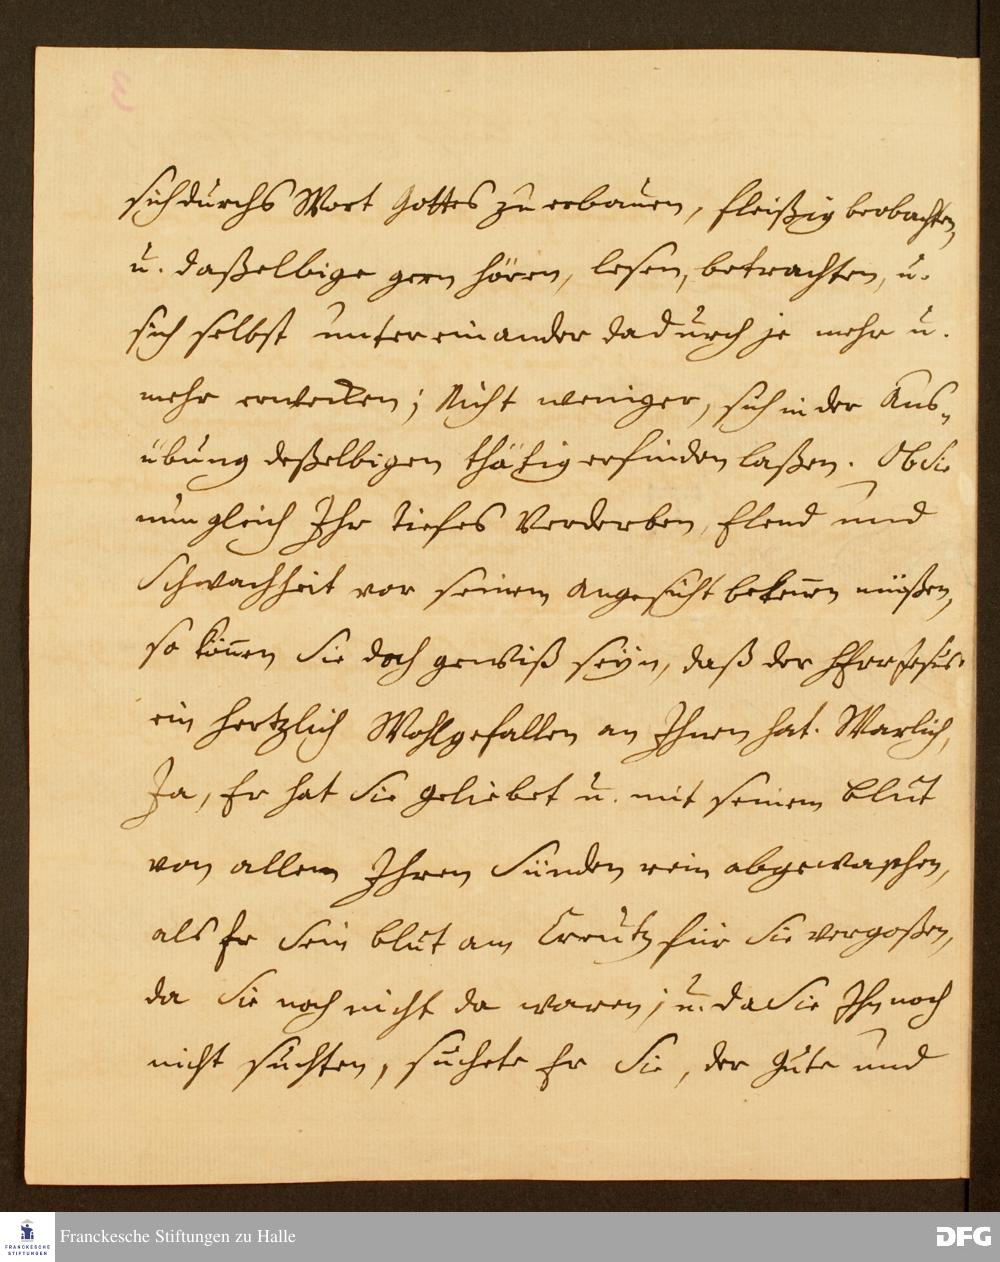 3
sich durchs Wort Gottes zu erbauen, fleißig beobachten,
u. daßelbige gern hören, lesen, betrachten, u.
sich selbst untereinander dadurch je mehr u.
mehr erwecken; Nicht weniger, sich in der Aus-
übung deßelbigen thätig erfinden laßen. Ob Sie
nun gleich Ihr tiefes Verderben, Elend und
Schwachheit vor seinem Angesicht bekennen müßen,
so können Sie doch gewiß seÿn, daß der HErr Jesus
ein hertzlich Wohlgefallen an Ihnen hat. Warlich,
Ja, Er hat Sie geliebet u. mit seinem Blut
von allen Ihren Sünden rein abgewaschen,
als Er Sein Blut am Creutz für Sie vergoßen,
da Sie noch nicht da waren; u. da Sie Ihn noch
nicht suchten, suchete Er Sie, der Gute und
FRANCKESCHE
STIFTUNGEN
Franckesche Stiftungen zu Halle
DFG